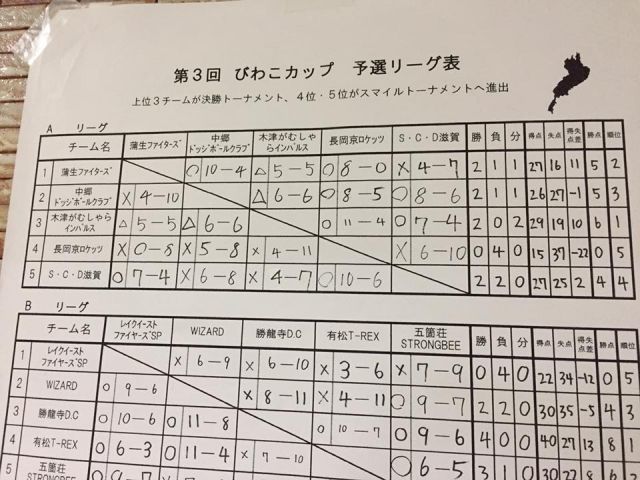 第3回 びわこカップ 予選リーグ表
上位3チームが決勝トーナメント、4位・5位がスマイルトーナメントへ進出
A リーグ
チーム名 蒲生ファイターズ 中郷ドッジボールクラブ 木津がむしゃらインパルス 長岡京ロケッツ S・C・D滋賀 勝 負 分 得点 失点 得失点差 勝点 順位
1 蒲生ファイターズ ○ 10-4 △ 5-5 ○ 8-0 × 4-7 2 1 1 27 16 11 5 2
2 中郷ドッジボールクラブ × 4-10 △ 6-6 ○ 8-5 ○ 8-6 2 1 1 26 27 -1 5 3
3 木津がむしゃらインパルス △ 5-5 △ 6-6 ○ 11-4 ○ 7-4 2 0 2 29 19 10 6 1
4 長岡京ロケッツ × 0-8 × 5-8 × 4-11 × 6-10 0 4 0 15 37 -22 0 5
5 S・C・D滋賀 ○ 7-4 × 6-8 × 4-7 ○ 10-6 2 2 0 27 25 2 4 4
B リーグ
チーム名 レイクイーストファイヤーズSP WIZARD 勝龍寺D.C 有松T-REX 五箇荘STRONGBEE 勝 負 分 得点 失点 得失点差 勝点 順位
1 レイクイーストファイヤーズSP × 6-9 × 6-10 × 3-6 × 7-9 0 4 0 22 34 -12 0 5
2 WIZARD ○ 9-6 × 8-11 × 4-11 ○ 9-7 2 2 0 30 35 -5 4 3
3 勝龍寺D.C ○ 10-6 ○ 11-8 ○ 10-7 ○ 9-6 4 0 0 40 27 13 8 1
4 有松T-REX ○ 6-3 ○ 11-4 × 7-10 ○ 6-5 3 1 0 30 22 8 6
5 五箇荘STRONGBEE